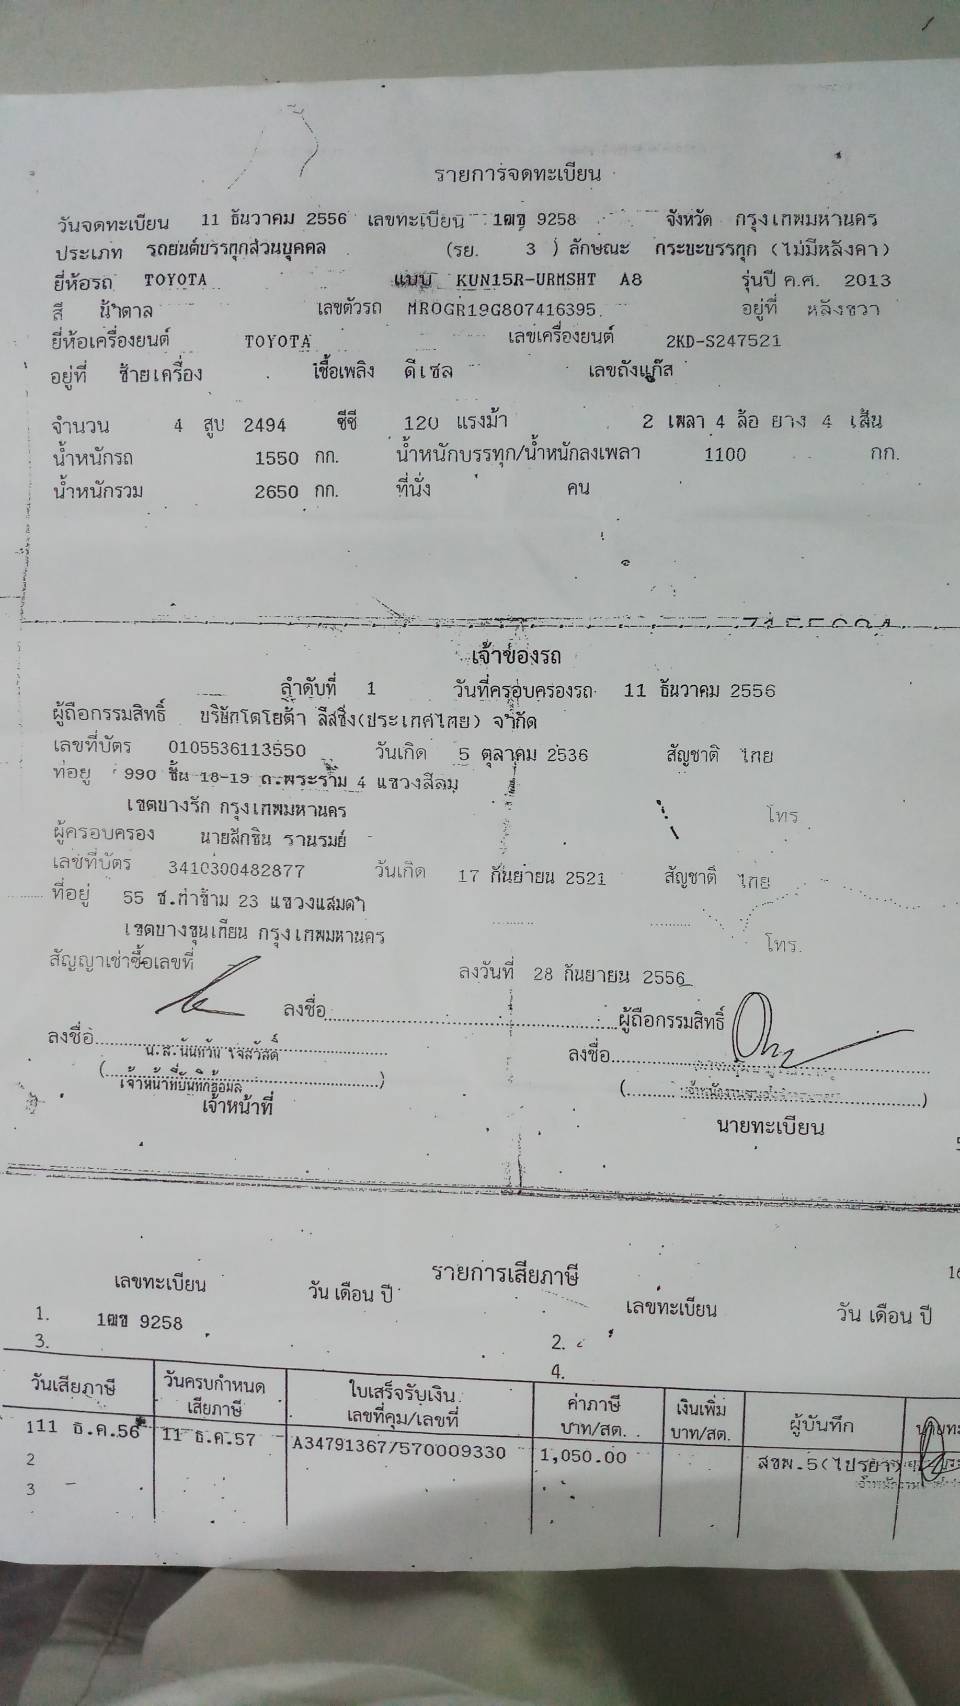 รายการจดทะเบียน
วันจดทะเบียน 11 ธันวาคม 2556 เลขทะเบียน 1ฒข 9258 จังหวัด กรุงเทพมหานคร
ประเภท รถยนต์บรรทุกส่วนบุคคล (รย. 3 ) ลักษณะ กระบะบรรทุก (ไม่มีหลังคา)
ยี่ห้อรถ TOYOTA แบบ KUN15R-URMSHT A8 รุ่นปี ค.ศ. 2013
สี น้ำตาล เลขตัวรถ MROGR19G807416395 อยู่ที่ หลังขวา
ยี่ห้อเครื่องยนต์ TOYOTA เลขเครื่องยนต์ 2KD-S247521
อยู่ที่ ซ้ายเครื่อง เชื้อเพลิง ดีเซล เลขถังแก๊ส
จำนวน 4 สูบ 2494 ซีซี 120 แรงม้า 2 เพลา 4 ล้อ ยาง 4 เส้น
น้ำหนักรถ 1550 กก. น้ำหนักบรรทุก/น้ำหนักลงเพลา 1100 กก.
น้ำหนักรวม 2650 กก. ที่นั่ง คน
เจ้าของรถ
ลำดับที่ 1 วันที่ครอบครองรถ 11 ธันวาคม 2556
ผู้ถือกรรมสิทธิ์ บริษัทโตโยต้า ลีสซิ่ง(ประเทศไทย) จำกัด
เลขที่บัตร 0105536113550 วันเกิด 5 ตุลาคม 2536 สัญชาติ ไทย
ที่อยู่ 990 ชั้น 18-19 ถ.พระราม 4 แขวงสีลม
เขตบางรัก กรุงเทพมหานคร โทร
ผู้ครอบครอง นายสักชิน รานรมย์
เลขที่บัตร 3410300482877 วันเกิด 17 กันยายน 2521 สัญชาติ ไทย
ที่อยู่ 55 ซ.ท่าข้าม 23 แขวงแสมดำ
เขตบางขุนเทียน กรุงเทพมหานคร โทร.
สัญญาเช่าซื้อเลขที่ ลงวันที่ 28 กันยายน 2556
ลงชื่อ ผู้ถือกรรมสิทธิ์
ลงชื่อ ลงชื่อ
น.ส.นันทวัน ใจสวัสดิ์
เจ้าหน้าที่บันทึกข้อมูล
เจ้าหน้าที่ นายทะเบียน
รายการเสียภาษี 16
เลขทะเบียน วัน เดือน ปี เลขทะเบียน วัน เดือน ปี
1. 1ฒข 9258 2.
3. 4.
วันเสียภาษี วันครบกำหนดเสียภาษี ใบเสร็จรับเงิน เลขที่คุม/เลขที่ ค่าภาษี บาท/สต. เงินเพิ่ม บาท/สต. ผู้บันทึก
1 11 ธ.ค.56 11 ธ.ค.57 A34791367/570009330 1,050.00 สขพ.5
2
3